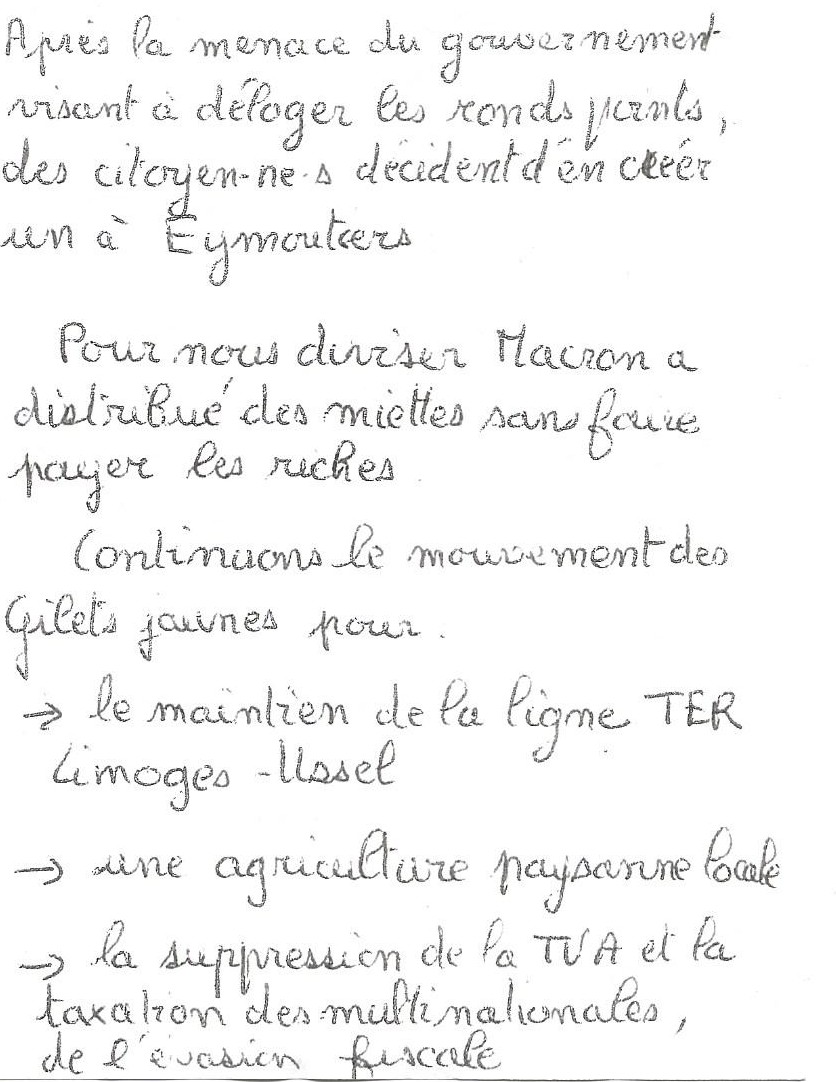 Après la menace du gouvernement
visant à déloger les ronds points,
des citoyen-ne-s décident d'en créer
un à Eymoutiers
Pour nous diviser Macron a
distribué des miettes sans faire
payer les riches
Continuons le mouvement des
Gilets jaunes pour.
→ le maintien de la ligne TER
Limoges-Ussel
→ une agriculture paysanne locale
→ la suppression de la TVA et la
taxation des multinationales,
de l'évasion fiscale